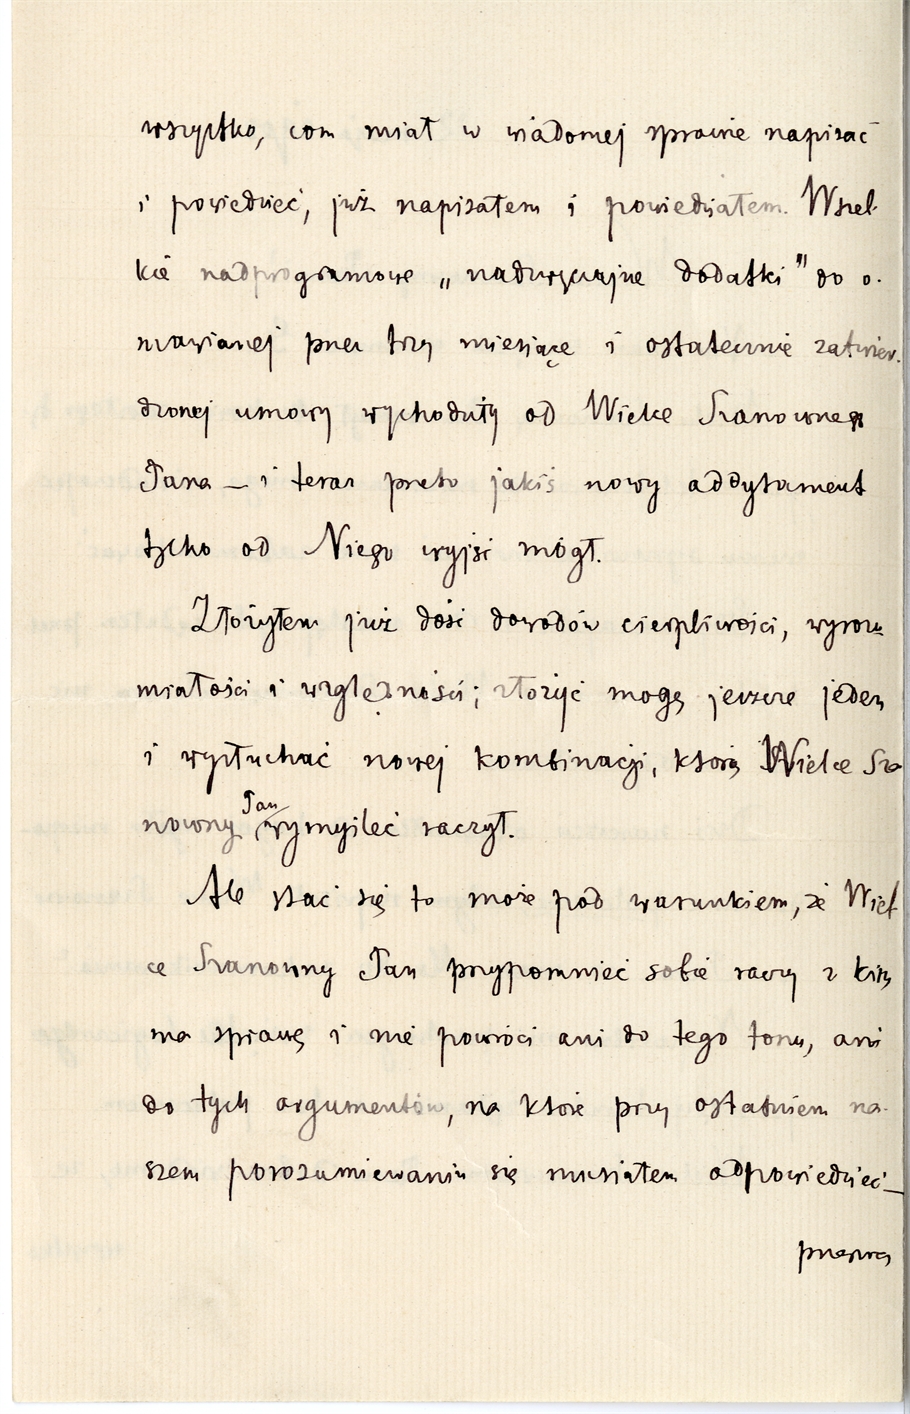 wszystko, com miał w wiadomej sprawie napisać
i powiedzieć, już napisałem i powiedziałem. Wszel-
kie nadprogramowe „nadzwyczajne dodatki" do o-
mawianej przez trzy miesiące i ostatecznie zatwier-
dzonej umowy wychodziły od Wielce Szanownego
Pana — i teraz przeto jakiś nowy addytament
tylko od Niego wyjść mógł.
Złożyłem już dość dowodów cierpliwości, wyrozu
miałości i względności; złożyć mogę jeszcze jeden
i wysłuchać nowej kombinacji, którą Wielce Sza
nowny Pan wymyśleć raczył.
Ale stać się to może pod warunkiem, że Wiel
ce Szanowny Pan przypomnieć sobie raczy z kim
ma sprawę i nie powróci ani do tego tonu, ani
do tych argumentów, na które przy ostatniem na-
szem porozumiewaniu się musiałem odpowiedzieć —
przerwą